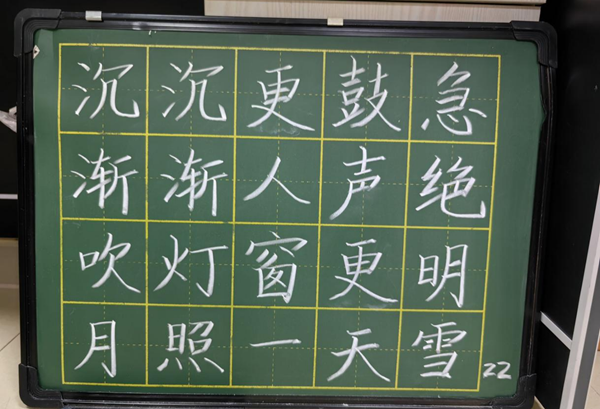 沉沉更鼓急
渐渐人声绝
吹灯窗更明
月照一天雪
22